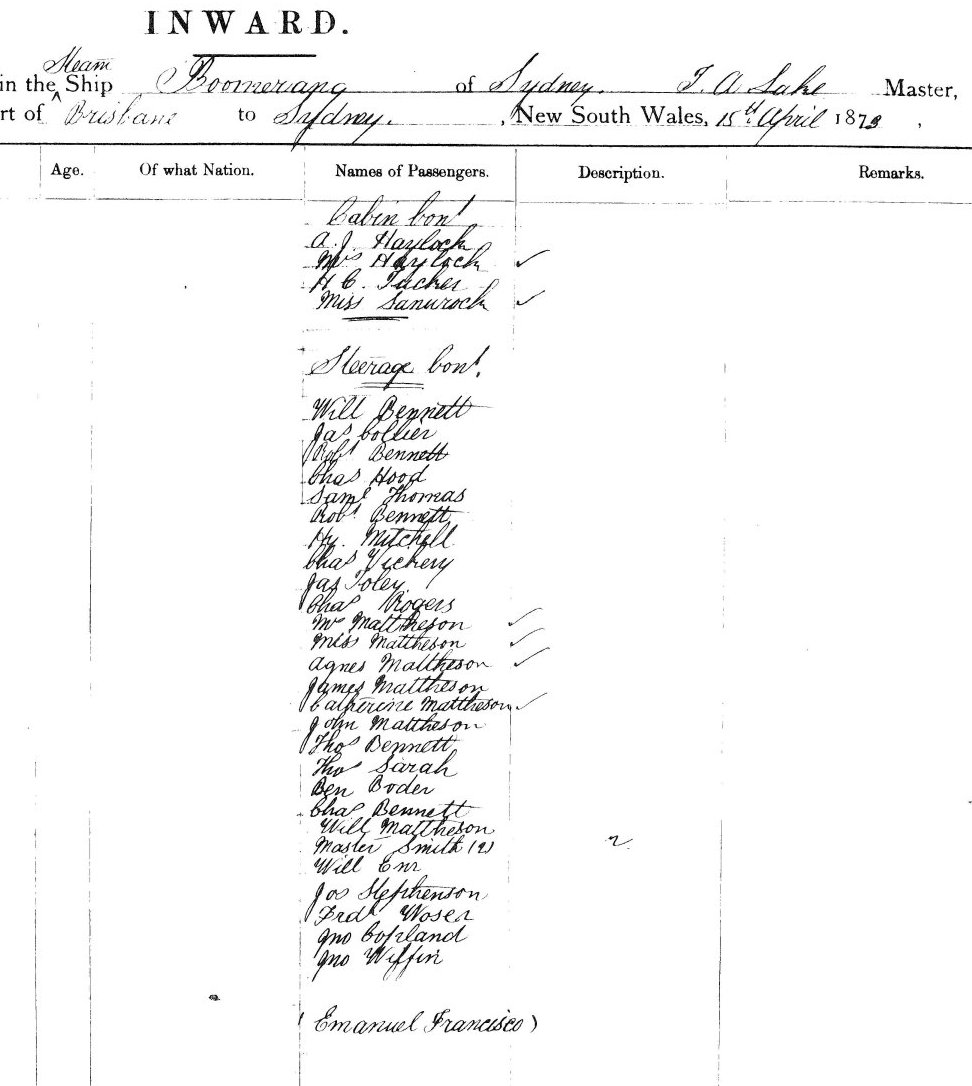 INWARD.
Steam
in the ^ Ship Boomerang of Sydney. T. A Lake Master,
rt of Brisbane to Sydney. , New South Wales, 15th April 1873 ,
Age. Of what Nation. Names of Passengers. Description. Remarks.
Cabin Cont
A. J. Haylock
Mrs Haylock ✓
H C. Tucker
Miss ✓
Steerage Cont.
Will Bennett
Jas Collier
Robt Bennett
Chas Hood
Saml Thomas
Robt Bennett
Hy. Mitchell
Chas Vickery
Jas Foley
Chas Rogers
Mrs Mattheson ✓
Miss Mattheson ✓
Agnes Mattheson ✓
James Mattheson
Catherine Mattheson ✓
John Mattheson
Thos Bennett
Thos Sarah
Ben Boder
Chas Bennett
Will Mattheson
Master Smith (2) 2
Will
Jos Stephenson
Fredk
Jno Copland
Jno Wiffin
(Emanuel Francisco)